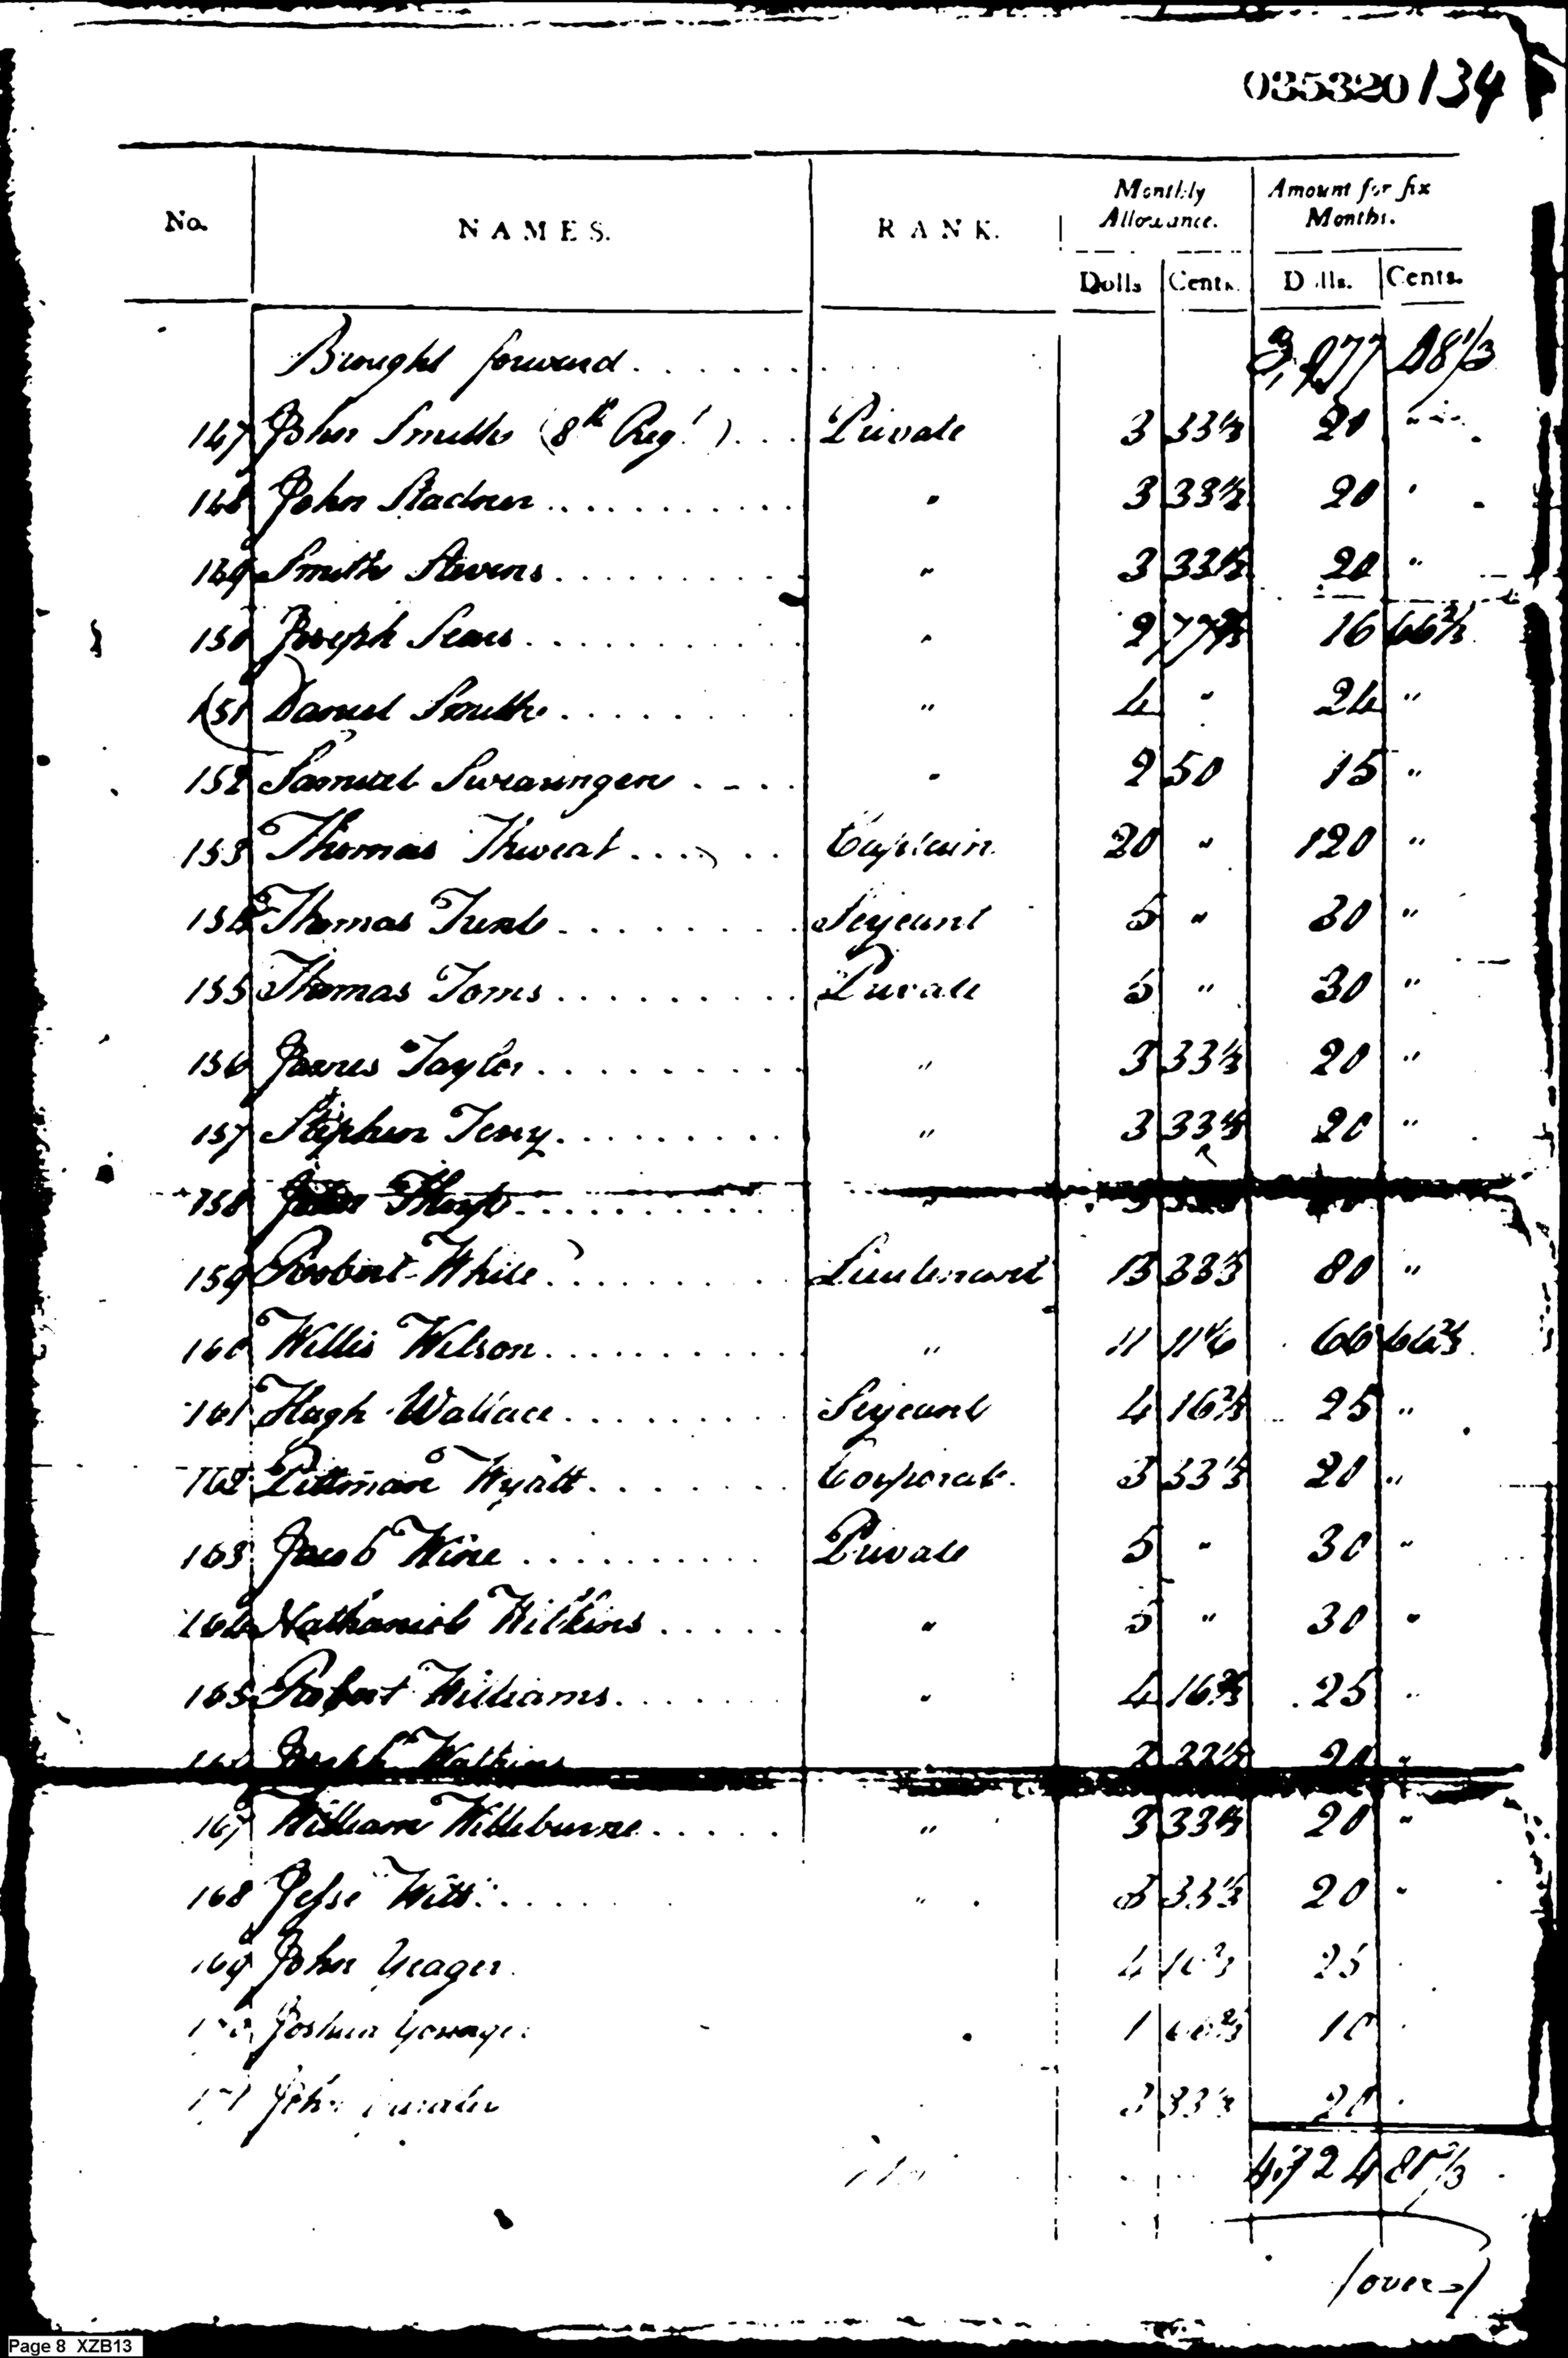 035320 134
No. NAMES. RANK. Monthly Allowance. Amount for six Months.
Dolls Cents. Dolls. Cents.
Brought forward . . . . . . . . . . 3,977 48 1/3
147 John Smith (8th Regt) . . . Private 3 33 1/3 20 "
148 John Stadner . . . . . . . . . . . " 3 33 1/3 20 "
149 Smith Stevens . . . . . . . . . . " 3 33 1/3 20 "
150 Joseph Sears . . . . . . . . . . . " 2 77 2/3 16 66 2/3
151 Daniel Smith . . . . . . . . . " 4 " 24 "
152 Samuel Swearingen . . . . " 2 50 15 "
153 Thomas Thweat . . . . . . Captain 20 " 120 "
154 Thomas . . . . . . . . . Serjeant 5 " 30 "
155 Thomas Toms . . . . . . . . . Private 5 " 30 "
156 James Taylor . . . . . . . . . . " 3 33 1/3 20 "
157 Stephen Terry . . . . . . . . . " 3 33 1/3 20 "
158 . . . . . . . . . . "
159 Robert White . . . . . . . . . . Lieutenant 13 33 1/3 80 "
160 Willis Wilson . . . . . . . . . . . " 11 11 1/6 66 66 2/3
161 Hugh Wallace . . . . . . . . . Serjeant 4 16 2/3 25 "
162 Pittman Wyatt . . . . . . . . Corporal 3 33 1/3 20 "
163 Jacob Wine . . . . . . . . . . Private 5 " 30 "
164 Nathaniel Wilkins . . . . . . " 5 " 30 "
165 Robert Williams . . . . . . . " 4 16 2/3 25 "
166 Joseph Watkins " 20 "
167 William Willeburne . . . . . " 3 33 1/3 20 "
168 Jesse Witt . . . . . . " 3 33 1/3 20 "
169 John Yeager 4 16 2/3 25
Joshua 1 66 2/3 10
John 3 33 1/3 20
4,724 81 2/3
(over)
Page 8 XZB13